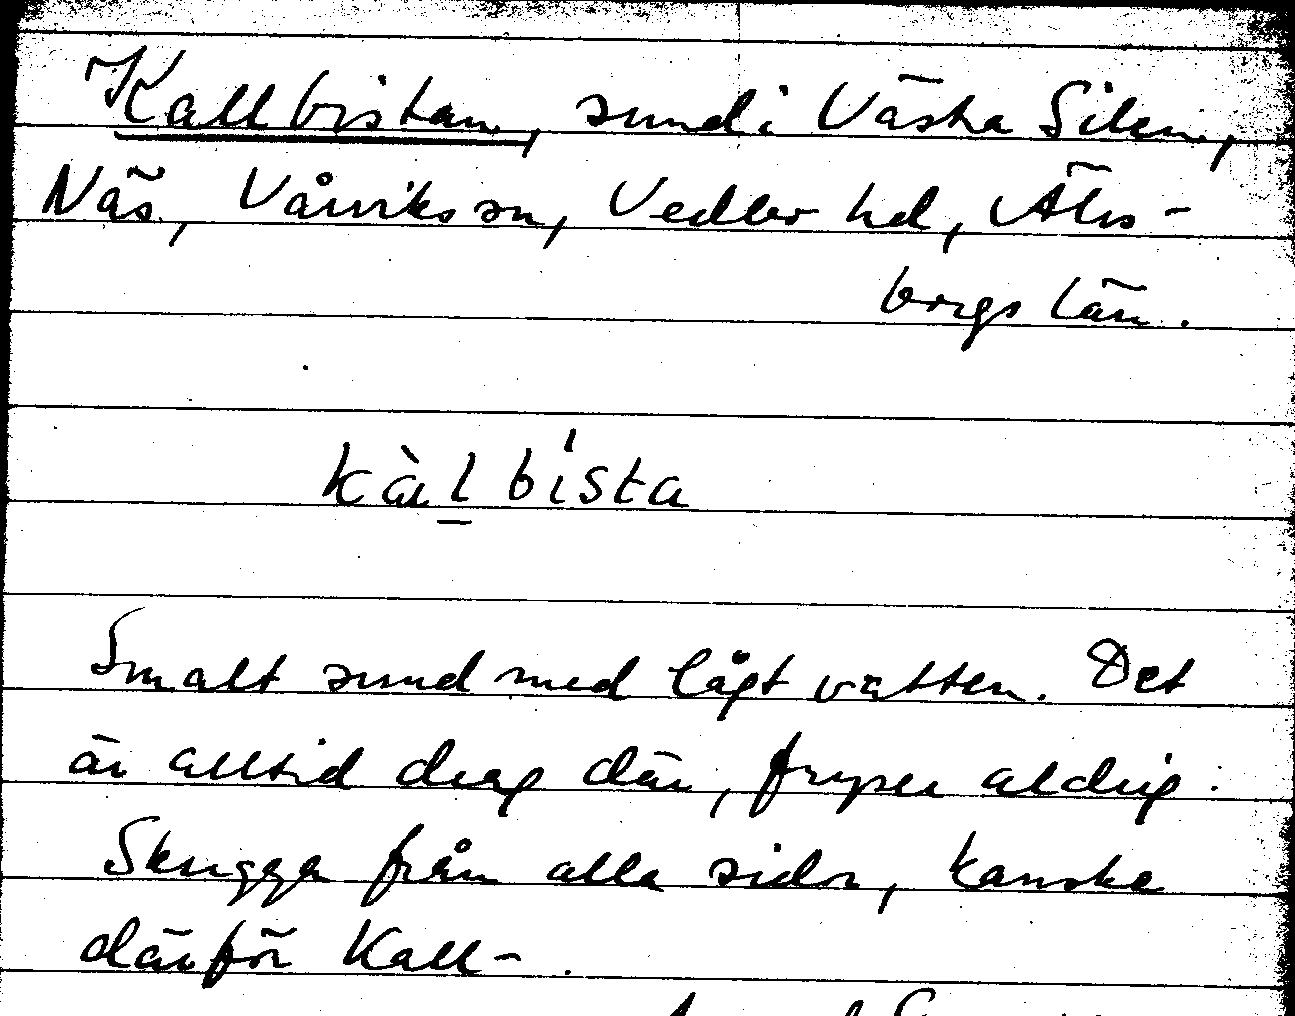 Kallbistan, sund i Västra Silen,
Näs, Vårviks sn, Vedbo hd, Älvs-
borgs län.
kàlbísta
Smalt sund med lågt vatten. Det
är alltid drag där, fryser aldrig.
Skugga från alla sidor, kanske
därför Kall-.